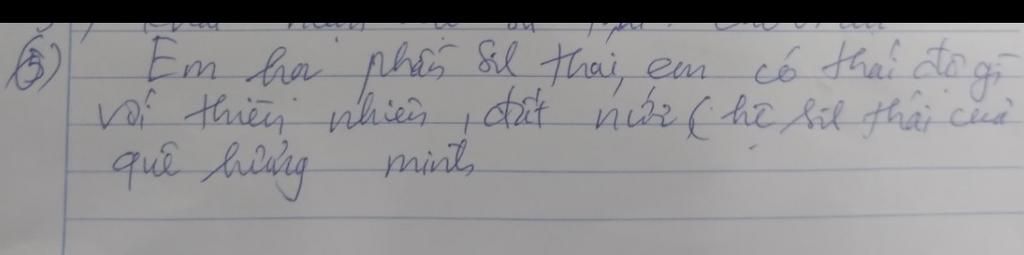 (5) Em học phần Sil thái, em có thái độ gì
với thiên nhiên, đất nước (hệ Sil thái của
quê hương mình